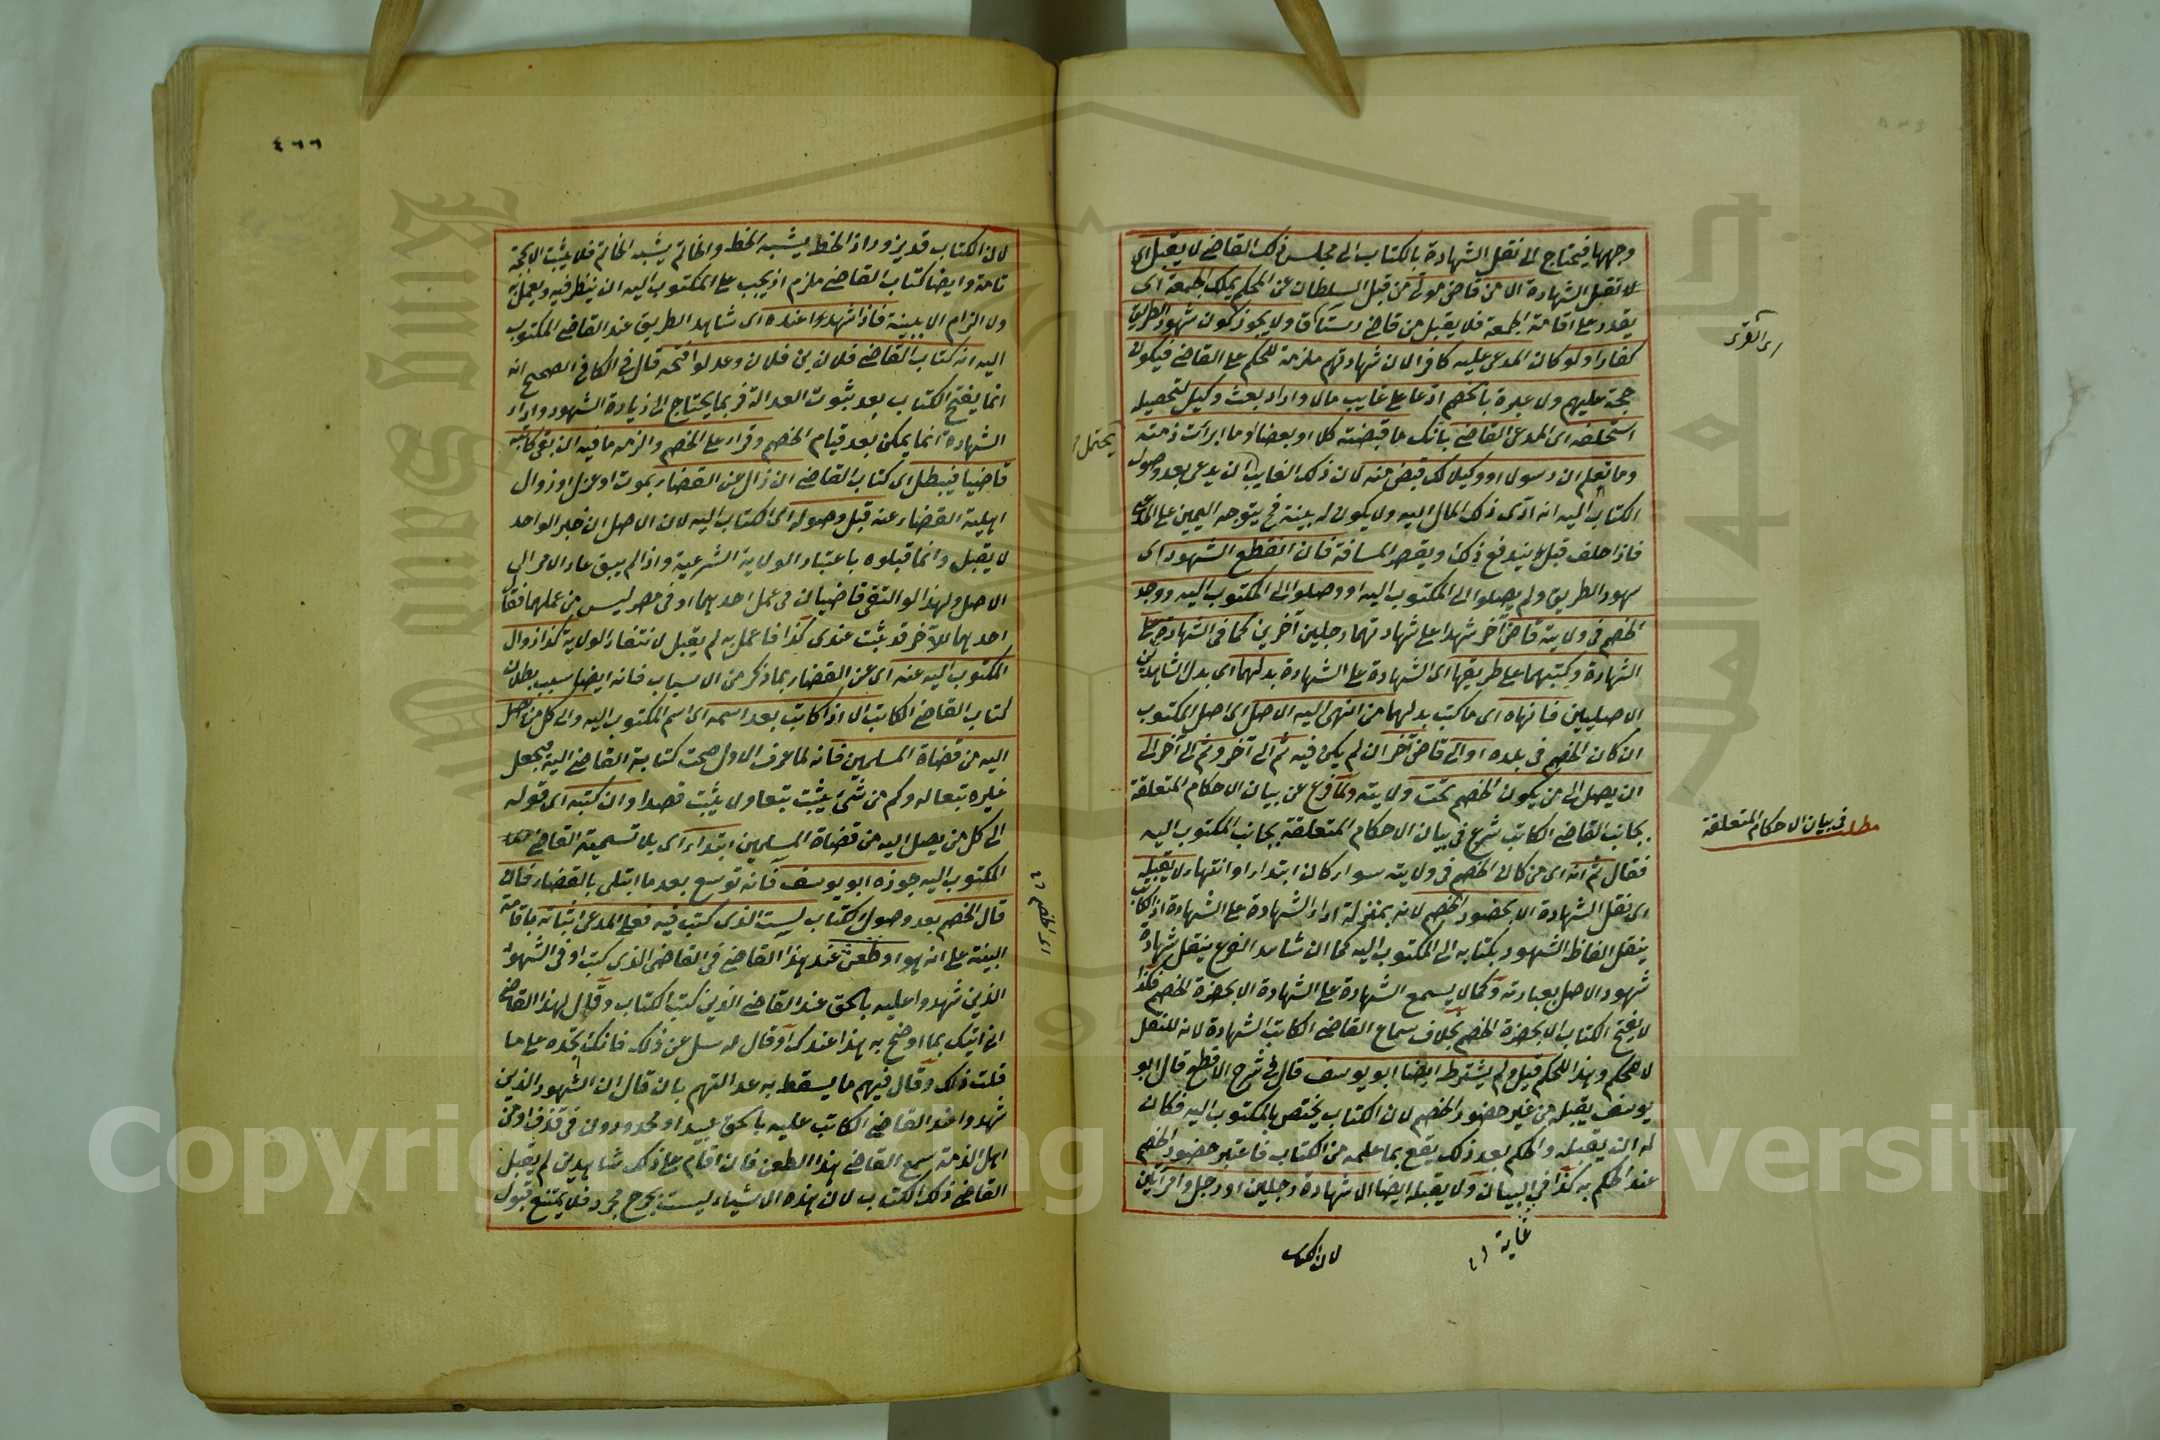 وجهها فيحتاج الى نقل الشهادة بالكتاب الى مجلس ذلك القاضي لا يقبل اى
لا تقبل الشهادة الا من قاض مولى من قبل السلطان عن المحكم يملك الجمعة اى
يقدر على اقامة الجمعة فلا يقبل من قاضي رستاق ولا يجوز كون شهود الطريق
كفارا ولو كان المدعى عليه كافرا لان شهادتهم ملزمة للحكم على القاضي فيكون
حجة عليهم ولا عبرة بالخصم ادعا على غايب مالا واراد بعث وكيل لتحصيله
استحلفه اى المدعى القاضي بانك ما قبضته كلا او بعضا وما ابرأت ذمته
وما تعلم ان رسولا او وكيلا لك قبض منه لان ذلك الغايب ان يدعى بعد وصول
الكتاب اليه انه ادى ذلك المال اليه ولا يكون له بينة فح يتوجه اليمين على المدعى
فاذا حلف قبله يندفع ذلك ويقصر المسافة فان انقطع الشهود اى
شهود الطريق ولم يصلوا الى المكتوب اليه او وصلوا الى المكتوب اليه ووجد
الخصم فى ولاية قاض آخر شهدا على شهادتهما رجلين آخرين كما فى الشهادة على
الشهادة وكتبهما على طريقها اى الشهادة على الشهادة بدلهما اى بدل الشاهدين
الاصليين فانهاه اى ما كتب بدلهما من انتهى اليه الاصل اى اصل المكتوب
ان كان الخصم فى بلده او الى قاض آخر ان لم يكن فيه ثم الى آخر وثم الى آخر الى
ان يصل الى من يكون الخصم تحت ولايته ولما فرغ عن بيان الاحكام المتعلقة
بجانب القاضي الكاتب شرع فى بيان الاحكام المتعلقة بجانب المكتوب اليه
فقال ثم انه اى من كان الخصم فى ولايته سواء كان ابتداء او انتهاء لا يقبله
اى نقل الشهادة الا بحضور الخصم لانه بمنزلة اداء الشهادة على الشهادة اذ الكاتب
ينقل الفاظ الشهود بكتابه الى المكتوب اليه كما ان شاهد الفرع ينقل شهادة
شهود الاصل بعبارته وكما لا يسمع الشهادة على الشهادة الا بحضرة الخصم فكذا
لا يفتح الكتاب الا بحضرة الخصم بخلاف سماع القاضي الكاتب الشهادة لانه للنقل
لا للحكم وهذا للحكم قيل ولم يشترطه ايضا ابو يوسف قال فى شرح الاقطع قال ابو
يوسف يقبله من غير حضور الخصم لان الكتاب يختص بالمكتوب اليه فكان
له ان يقبله والحكم بعد ذلك يقع بما علمه من الكتاب فاعتبر حضور الخصم
عند الحكم به كذا فى البيان ولا يقبله ايضا الا شهادة رجلين او رجل وامرأتين
لان الكتاب
غاية
اى القرى
يحتمل
مطلب فى بيان الاحكام المتعلقة
٤٦٦
لان الكتاب قد يزور اذ الخط يشبه الخط والخاتم يشبه الخاتم فلا يثبت الا بحجة
تامة وايضا كتاب القاضي ملزم اذ يجب على المكتوب اليه ان ينظر فيه ويعمل به
ولا الزام الا ببينة فاذا شهدوا عنده اى شاهد الطريق عند القاضي المكتوب
اليه انه كتاب القاضي فلان بن فلان وعدلوا فتحه قال فى الكافى الصحيح انه
انما يفتح الكتاب بعد ثبوت العدالة فربما يحتاج الى زيادة الشهود واداء
الشهادة انما يمكن بعد قيام الخصم وقراه على الخصم والزمه ما فيه ان بقى كاتبه
قاضيا فيبطل اى كتاب القاضي ان زال عن القضاء بموت او عزل او زوال
اهلية القضاء عنه قبل وصوله اى الكتاب اليه لان الاصل ان خبر الواحد
لا يقبل وانما قبلوه باعتبار الولاية الشرعية واذا لم يبق عاد الامر الى
الاصل ولهذا لو التقى قاضيان فى عمل احدهما او فى مصر ليس من عملهما فقال
احدهما للآخر قد ثبت عندى كذا فاعمل به لم يقبل لانتفاء الولاية كذا زوال
المكتوب اليه عنه اى عن القضاء بما ذكر من الاسباب فانه ايضا سبب بطلان
كتاب القاضي الكاتب الا اذا كاتب بعد اسمه اى اسم المكتوب اليه والى كل من يصل
اليه من قضاة المسلمين فانه لما عرف الاول صحت كتابة القاضي اليه فيجعل
غيره تبعا له وكم من شئ يثبت تبعا ولا يثبت قصدا وان كتبه اى قوله
الى كل من يصل اليه من قضاة المسلمين ابتداء اى بلا تسمية القاضي
المكتوب اليه جوزه ابو يوسف فانه توسع بعد ما ابتلى بالقضاء فان
قال الخصم بعد وصول الكتاب لست الذى كتب فيه فعلى المدعى اثباته باقامة
البينة على انه هو او طعن عند هذا القاضي فى القاضى الذى كتب او فى الشهود
الذين شهدوا عليه بالحق عند القاضي الذى كتب الكتاب وقال لهذا القاضى
انى اتيك بما اوضح به هذا عندك او قال له سل عن ذلك فانك تجده على ما
قلت ذلك وقال فيهم ما يسقط به عدالتهم بان قال ان الشهود الذين
شهدوا عند القاضي الكاتب عليه بالحق عبيد او محدودون فى قذف او من
اهل الذمة سمع القاضي هذا الطعن فان اقام على ذلك شاهدين لم يقبل
القاضي ذلك الكتاب لان هذه الاشياء ليست بجرح مجرد فلا يمتنع قبول
اى الخصم
Copyright © King Saud University